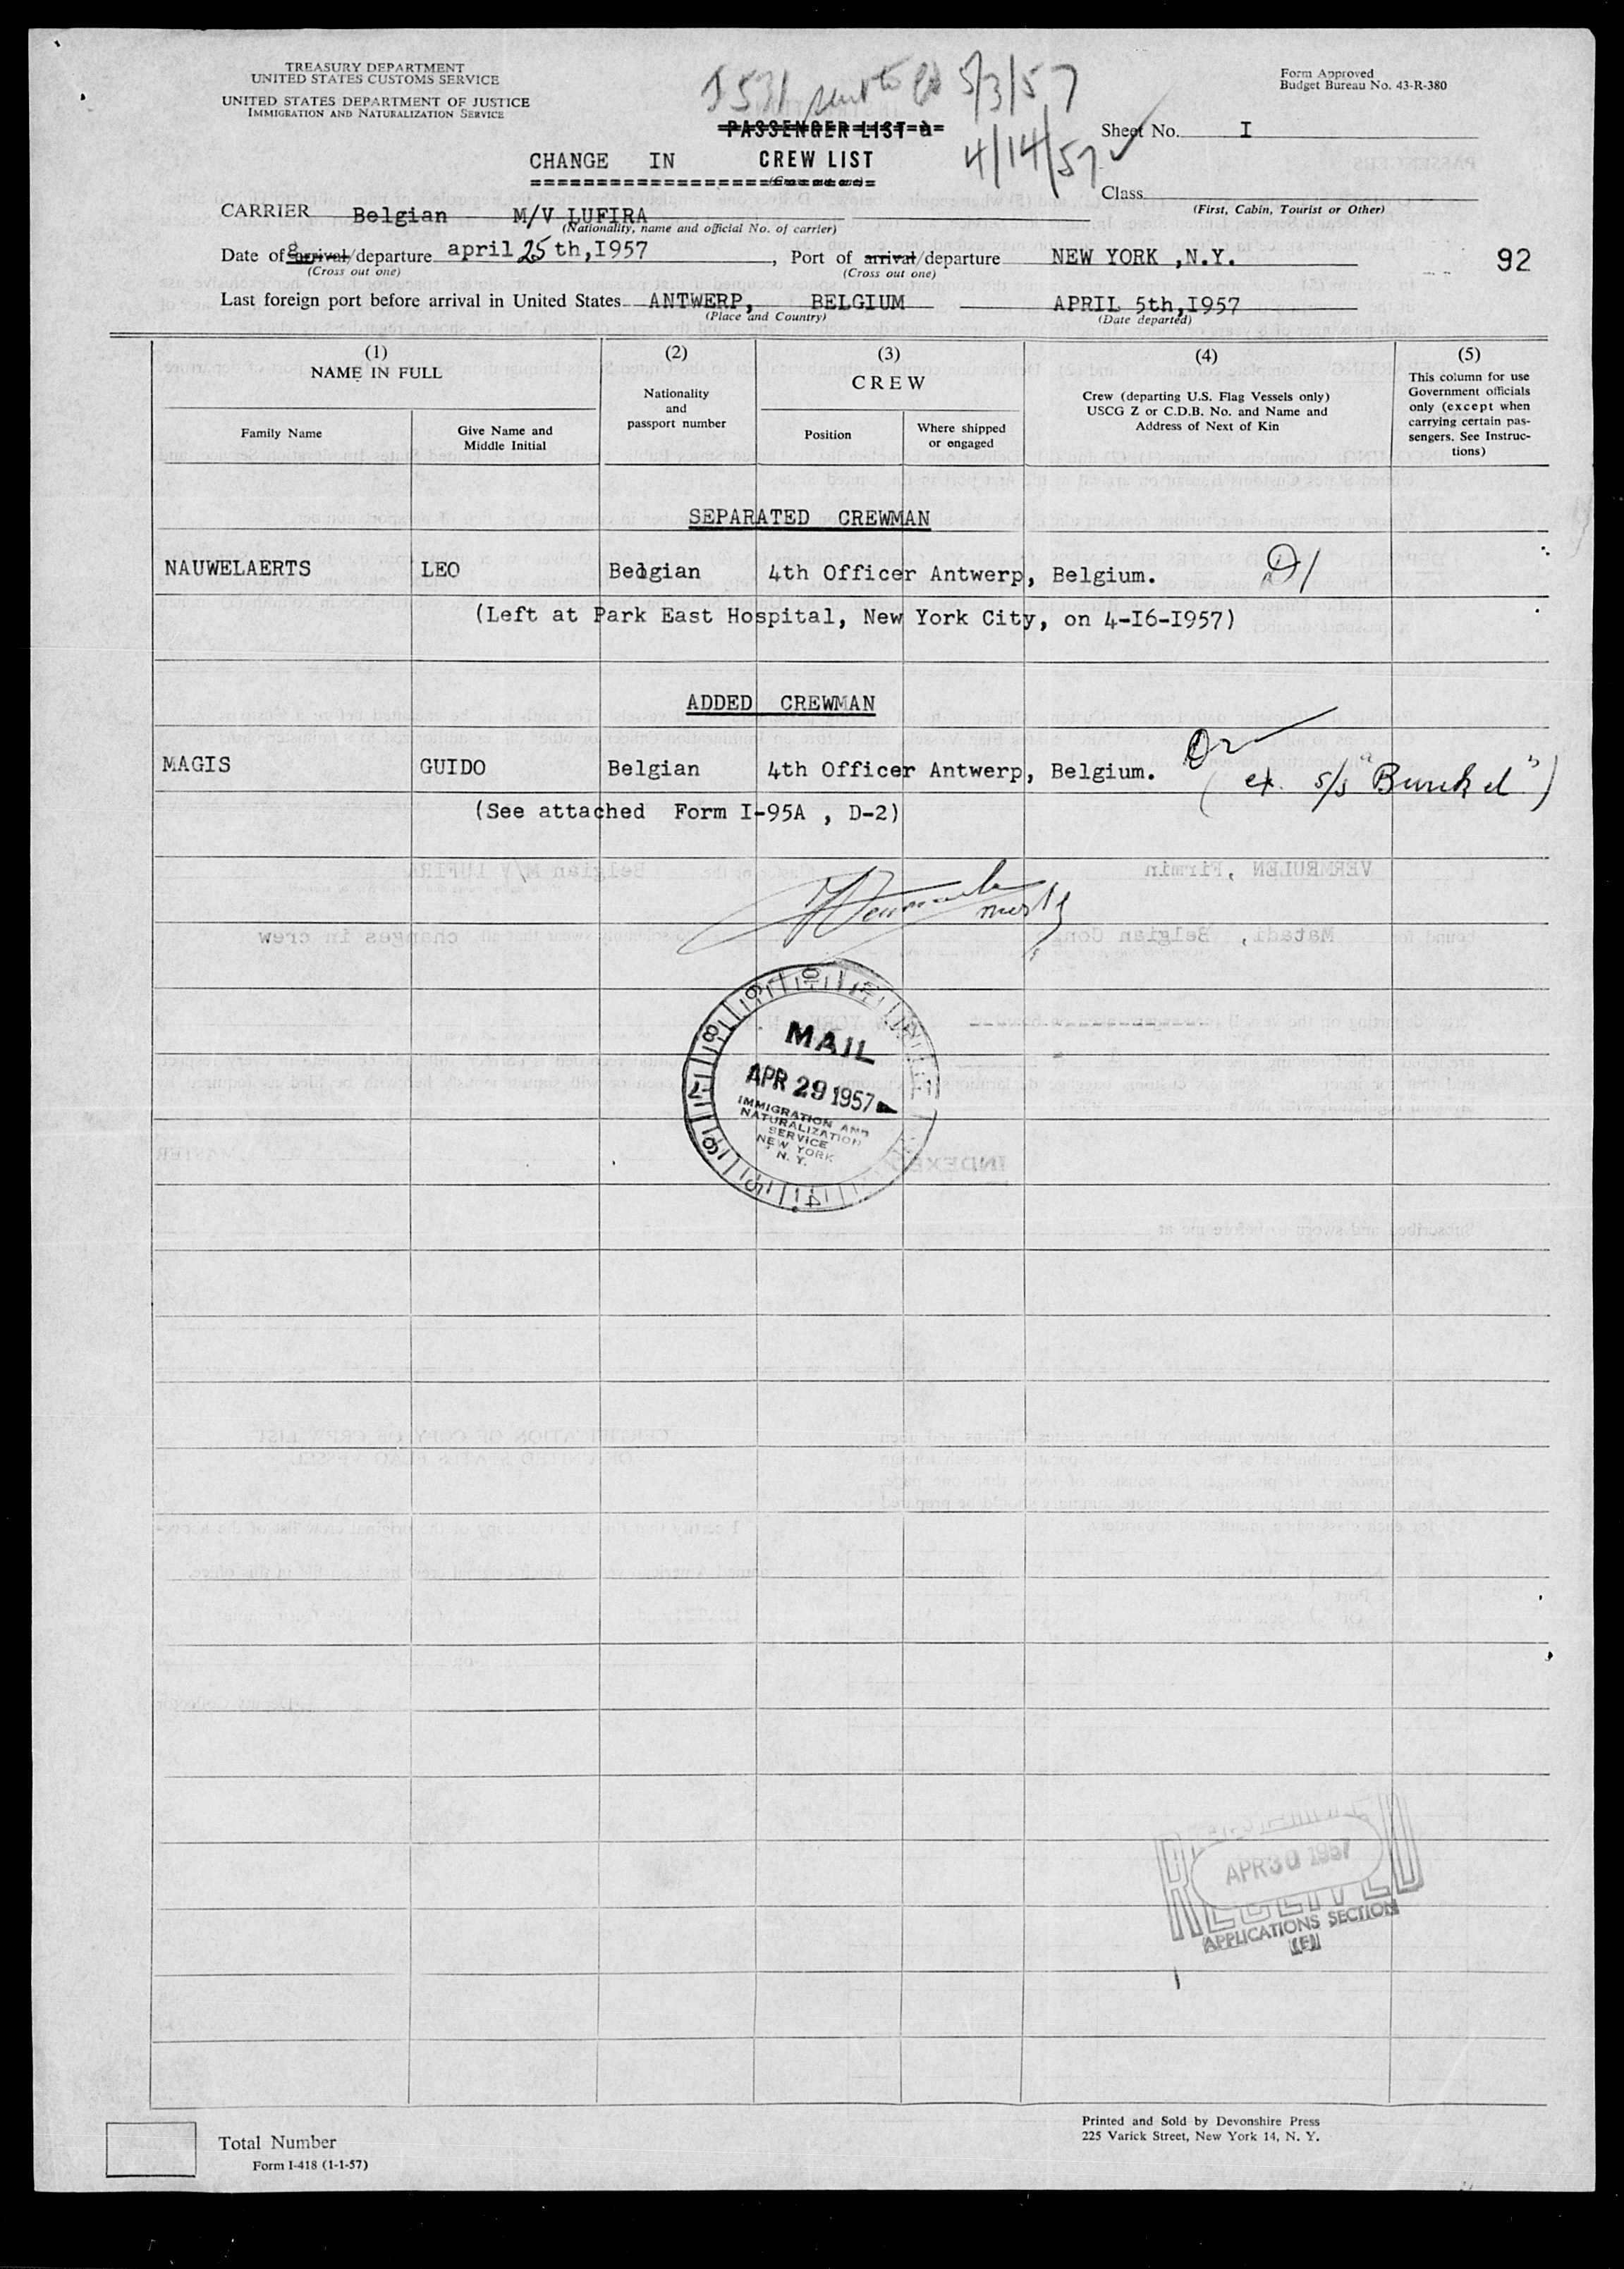 TREASURY DEPARTMENT
UNITED STATES CUSTOMS SERVICE
UNITED STATES DEPARTMENT OF JUSTICE
IMMIGRATION AND NATURALIZATION SERVICE
I 531 sent to 5/3/57
4/14/57
Form Approved
Budget Bureau No. 43-R-380
PASSENGER LIST
CHANGE IN CREW LIST
(Cross out one)
Sheet No. I
Class
(First, Cabin, Tourist or Other)
CARRIER Belgian M/V LUFIRA
(Nationality, name and official No. of carrier)
Date of arrival/departure april 25th,I957, Port of arrival/departure NEW YORK ,N.Y.
(Cross out one) (Cross out one)
92
Last foreign port before arrival in United States ANTWERP, BELGIUM APRIL 5th,I957
(Place and Country) (Date departed)
(1)
NAME IN FULL
Family Name
Give Name and
Middle Initial
(2)
Nationality
and
passport number
(3)
CREW
Position
Where shipped
or engaged
(4)
Crew (departing U.S. Flag Vessels only)
USCG Z or C.D.B. No. and Name and
Address of Next of Kin
(5)
This column for use
Government officials
only (except when
carrying certain pas-
sengers. See Instruc-
tions)
SEPARATED CREWMAN
NAUWELAERTS LEO Belgian 4th Officer Antwerp, Belgium. D1
(Left at Park East Hospital, New York City, on 4-I6-I957)
ADDED CREWMAN
MAGIS GUIDO Belgian 4th Officer Antwerp, Belgium. D2
(ex. s/s "Burckel")
(See attached Form I-95A , D-2)
MAIL
APR 29 1957
IMMIGRATION AND
NATURALIZATION
SERVICE
NEW YORK
N. Y.
APR 30 1957
RECEIVED
APPLICATIONS SECTION
Total Number
Form I-418 (1-1-57)
Printed and Sold by Devonshire Press
225 Varick Street, New York 14, N. Y.